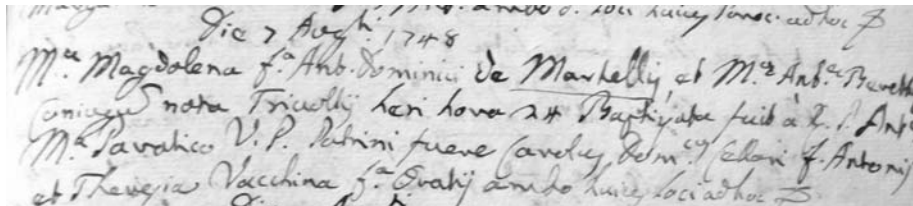 ambo d. loci huius
Die 7 Augti. 1748
Ma. Magdalena fa. Ant. Dominici de Martellij, et Mæ Antæ
Coniugu nata Trivoltij heri hora 24 Baptizata fuit a R. P. Ant
Ma. Pavatico V. P. Patrini fuere Carolus Domcus f. Antonij
et Theresia Vacchina fa. Oratij ambo huius loci ad hoc